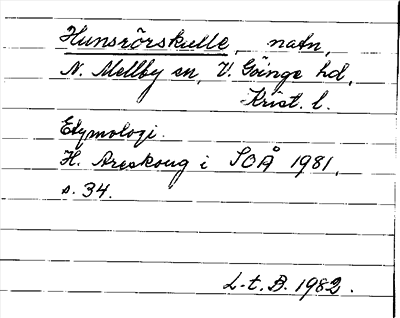 Hunsrörskulle, natn,
N. Mellby sn, V. Göinge hd,
Krist. l.
Etymologi.
H. Areskoug i SOÅ 1981,
s. 34.
L-t. B. 1982.